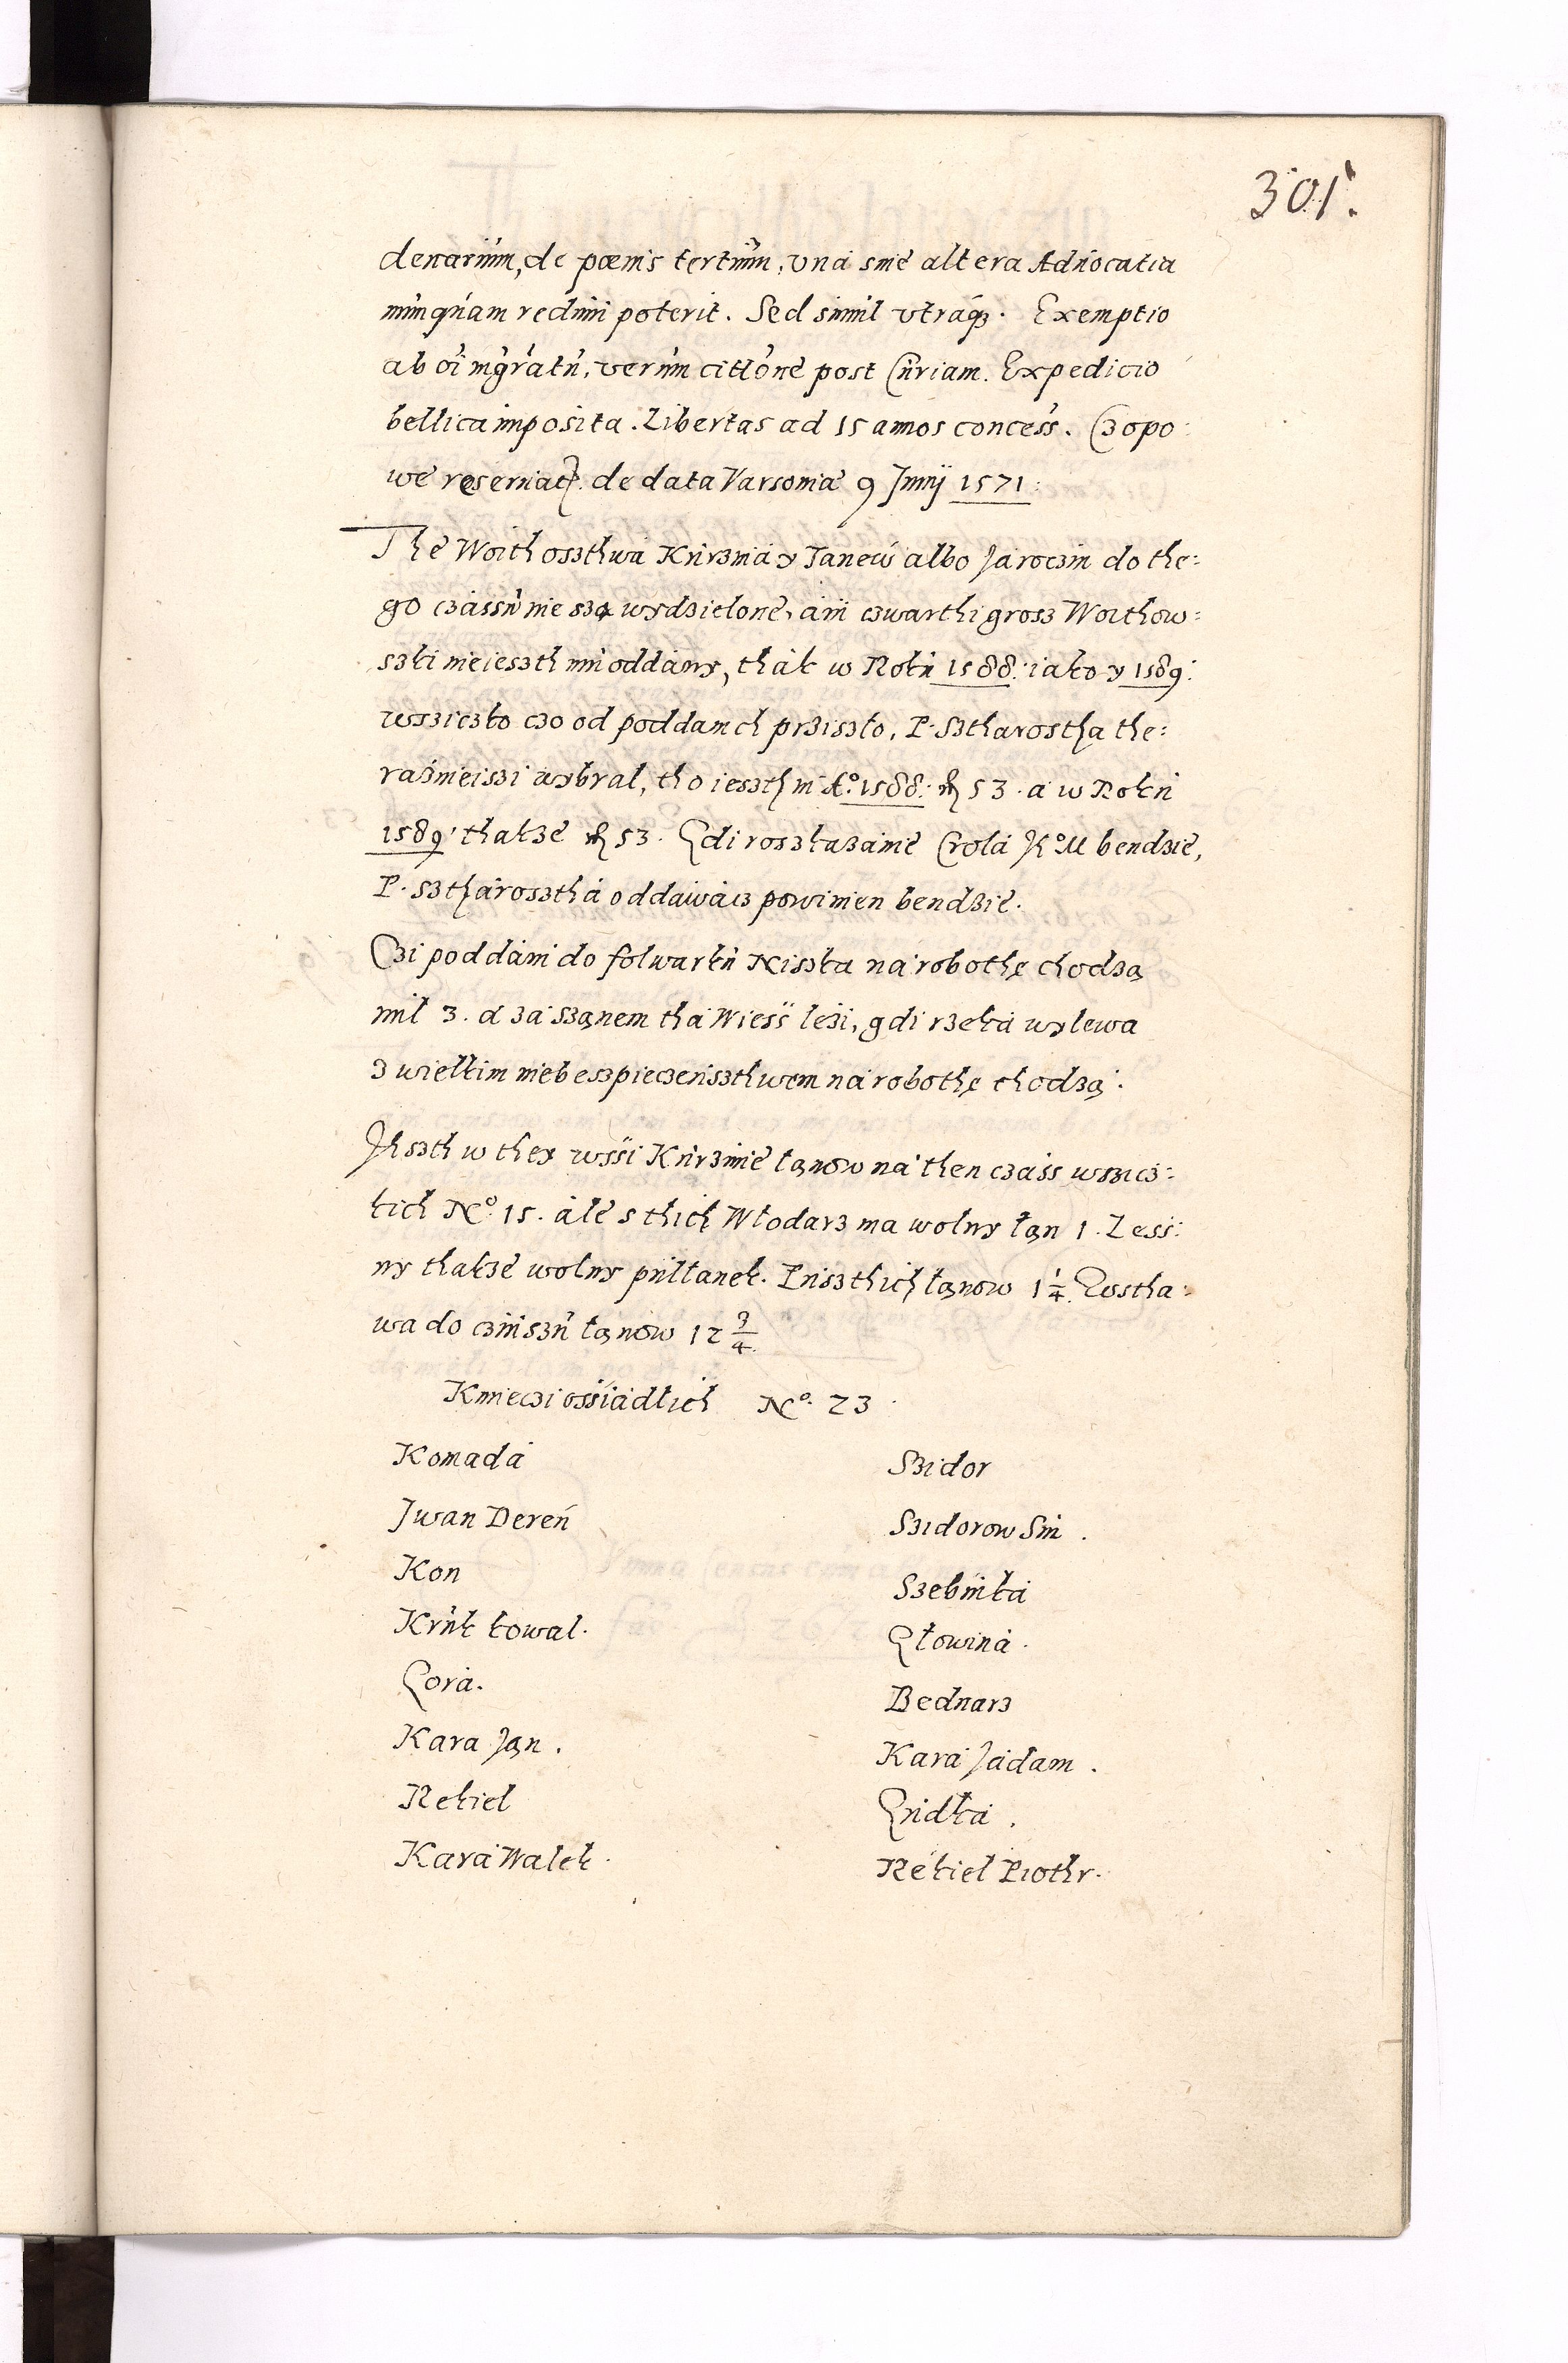 301.
denarium, de pœnis tertium, vna siue altera Aduocatia
nunquam redimi poterit. Sed simul vtraqȝ. Exemptio
ab oi mgratu, verum cittone post Curiam. Expedicio
bellica imposita. Libertas ad 15 annos concess. Czopo:
we reseruat. de data Varsouiæ 9 Junij 1571:
The Woithoszthwa Kurzina y Tanew albo Jaroczin do the:
go czassu nie szą wydzielone, ani czwarthi grosz Woithow:
szki nie ieszth mu oddany, thak w Roku 1588: iako y 1589:
wsziczko czo od poddanich prziszło, P. Sztharostha the:
razneiszi wybral, tho ieszth in Aº 1588: fl 53. a w Roku
1589: thakze fl 53. Gdi roszkazanie Crola Jº M bendzie,
P. Sztharosztha oddawacz powinien bendzie.
Czi poddani do folwarku Niszka na robothę chodzą
mil 3. a za Szanem tha Wiess lezi, gdi rzeka wylewa
z wielkim niebeszpieczenszthwem na robothę chodzą.
Jeszth w they wssi Kurzinie łanow na then czass wszicz:
kich Nº 15. ale s thich Włodarz ma wolny łan 1. Less:
ny thakze wolny pułłanek. Pusztich łanow 1 1/4. Zostha:
wa do czinszu łanow 12 3/4.
Kmieczi ossiadłich Nº. 23
Komada
Jwan Deren
Kon
Kruk kowal.
Gora.
Kara Jan.
Rekiel
Kara Walek.
Szidor
Szidorow Sin.
Szebiulka
Głowina.
Bednarz
Kara Jadam.
Gridka.
Rekiel Piothr.